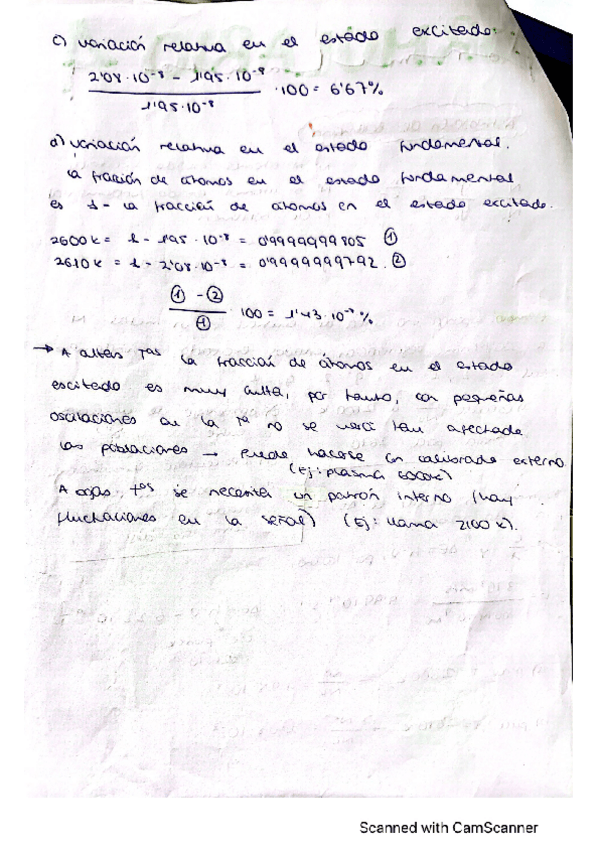 c) variación relativa en el estado excitado:
2'08·10⁻⁸ - 1'95·10⁻⁸ / 1'95·10⁻⁸ · 100 = 6'67%
d) variación relativa en el estado fundamental.
la fracción de átomos en el estado fundamental
es 1 - la fracción de átomos en el estado excitado.
2600 K = 1 - 1'95·10⁻⁸ = 0'9999999805 ①
2610 K = 1 - 2'08·10⁻⁸ = 0'9999999792. ②
① - ② / ① · 100 = 1'43·10⁻⁷ %
→ A altas Tas la fracción de átomos en el estado
escitado es muy alta, por tanto, con pequeñas
oscilaciones en la Ta no se verá tan afectada
las poblaciones → Puede hacerse con calibrado externo
(Ej: plasma 6000K)
A bajas tas se necesita un patrón interno (hay
fluctuaciones en la señal) (Ej: llama 2100 K).
Scanned with CamScanner